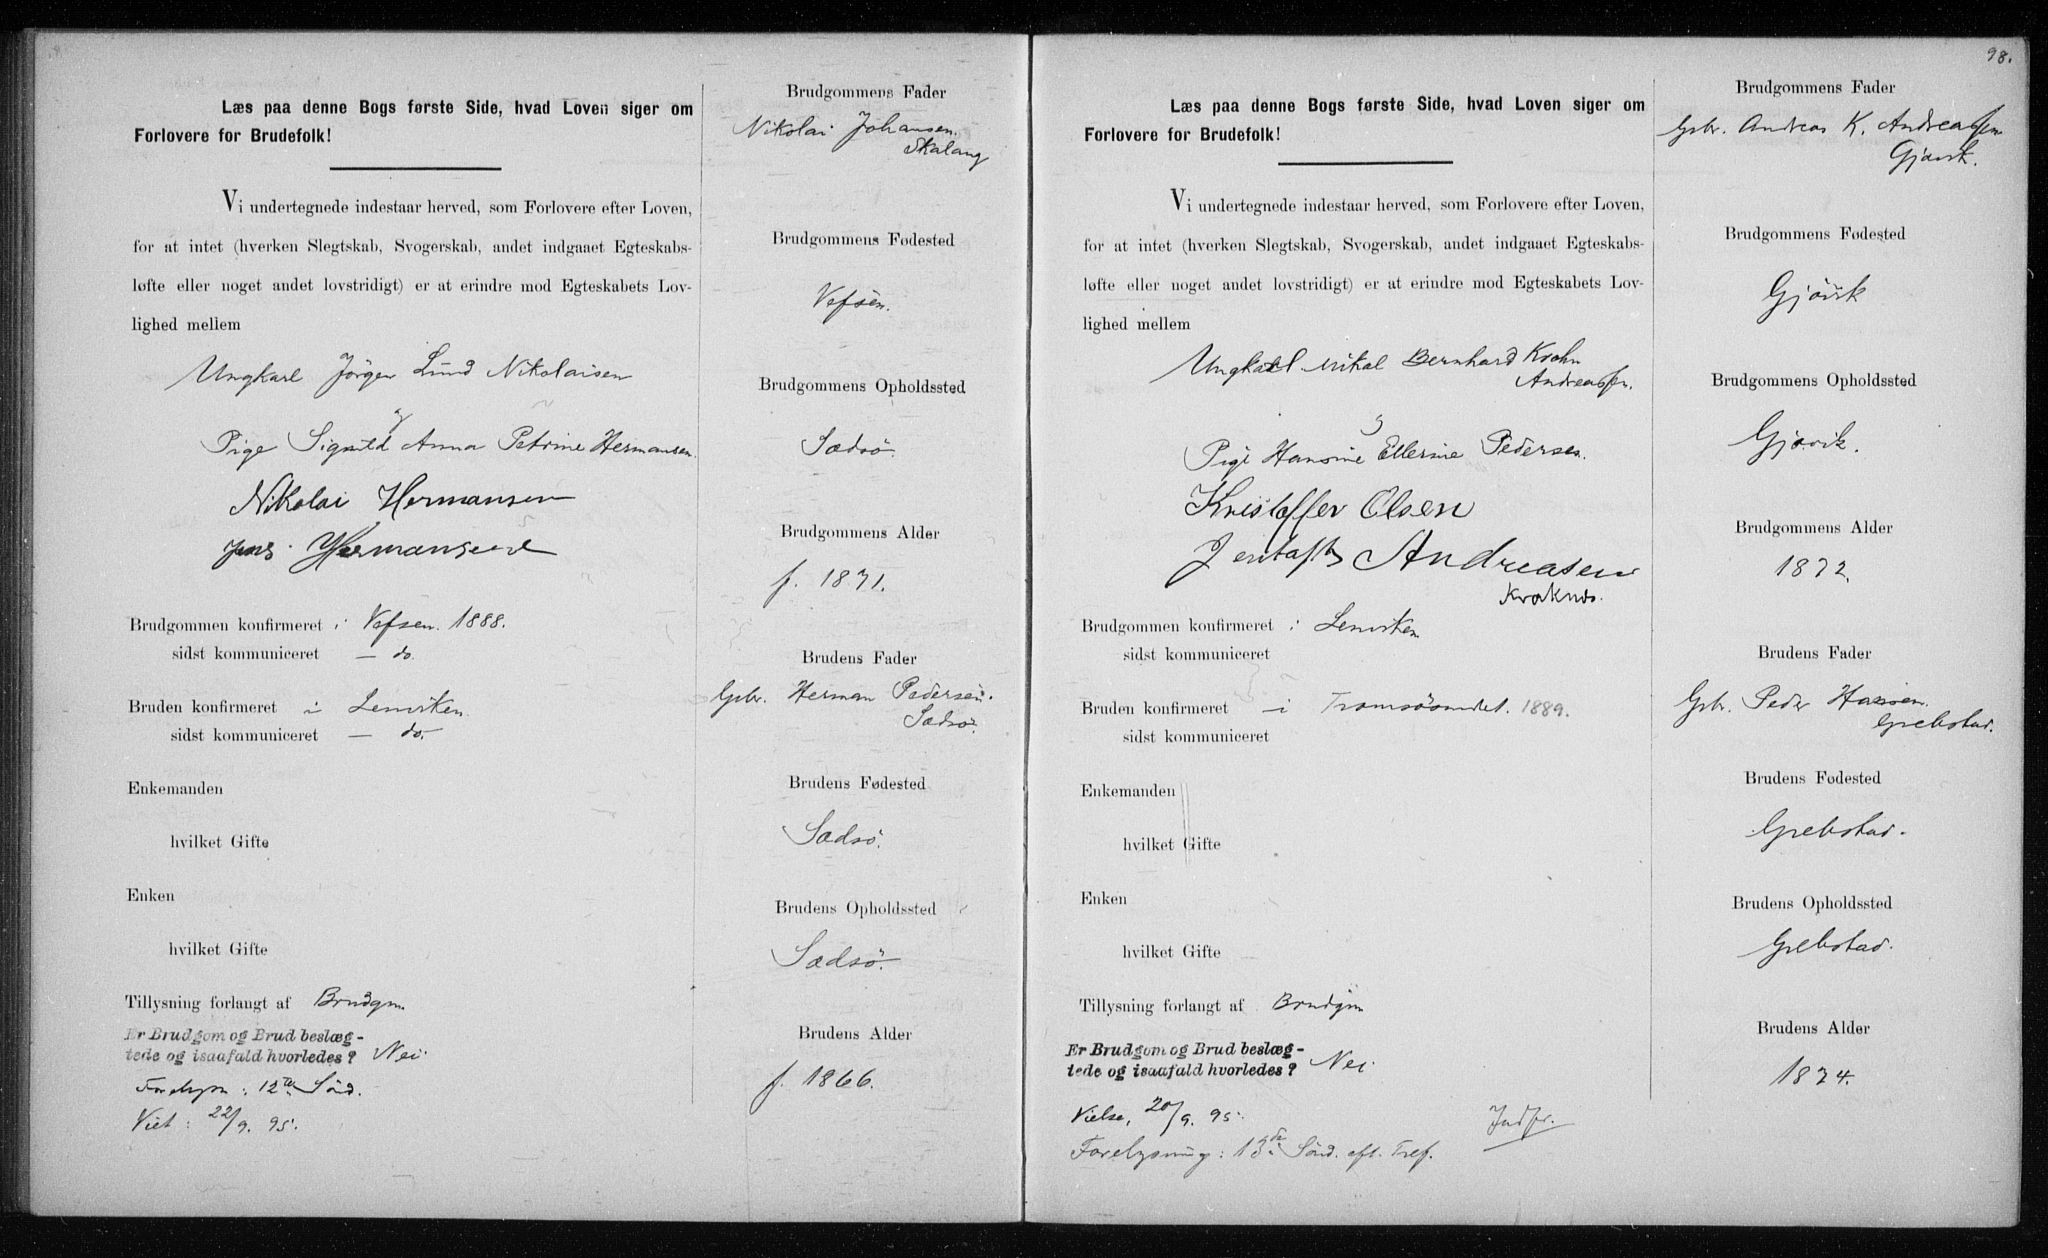 Læs paa denne Bogs første Side, hvad Loven siger om
Forlovere for Brudefolk!
Vi undertegnede indestaar herved, som Forlovere efter Loven,
for at intet (hverken Slegtskab, Svogerskab, andet indgaaet Egteskabs-
løfte eller noget andet lovstridigt) er at erindre mod Egteskabets Lov-
lighed mellem
Ungkarl Jörgen Lund Nikolaisen
og
Pige Signild Anna Petrine Hermansen
Nikolai Hermansen
Jens Hermansen
Brudgommen konfirmeret i Vefsen 1888.
sidst kommuniceret — do.
Bruden konfirmeret i Lenviken
sidst kommuniceret — do.
Enkemanden
hvilket Gifte
Enken
hvilket Gifte
Tillysning forlangt af Brudgm
Er Brudgom og Brud beslæg-
tede og isaafald hvorledes? Nei.
: 12te Sönd.
Viet : 22/9. 95.
Brudgommens Fader
Nikolai Johansen
Skalang
Brudgommens Fødested
Vefsen.
Brudgommens Opholdssted
Sædsö.
Brudgommens Alder
f. 1871.
Brudens Fader
Gbr. Herman Pedersen.
Sædsö.
Brudens Fødested
Sædsö.
Brudens Opholdssted
Sædsö.
Brudens Alder
f. 1866.
98.
Læs paa denne Bogs første Side, hvad Loven siger om
Forlovere for Brudefolk!
Vi undertegnede indestaar herved, som Forlovere efter Loven,
for at intet (hverken Slegtskab, Svogerskab, andet indgaaet Egteskabs-
løfte eller noget andet lovstridigt) er at erindre mod Egteskabets Lov-
lighed mellem
Ungkarl Mikal Bernhard Krohn
Andreassen.
Pige Hansine Ellerine Pedersen.
Kristoffer Olsen
Jentoft Andreasen
Kraknes.
Brudgommen konfirmeret i Lenviken
sidst kommuniceret
Bruden konfirmeret — i Tromsösundet. 1889.
sidst kommuniceret
Enkemanden
hvilket Gifte
Enken
hvilket Gifte
Tillysning forlangt af Brudgm
Er Brudgom og Brud beslæg-
tede og isaafald hvorledes? Nei.
Vielse, 20/9. 95.
Indfr.
Forelysning: 13de Sönd. eft. Tref.
Brudgommens Fader
Gbr. Andreas K. Andreassen
Gjövik.
Brudgommens Fødested
Gjövik
Brudgommens Opholdssted
Gjövik.
Brudgommens Alder
1872.
Brudens Fader
Gbr. Peder Hansen.
Grebstad.
Brudens Fødested
Grebstad.
Brudens Opholdssted
Grebstad.
Brudens Alder
1874.